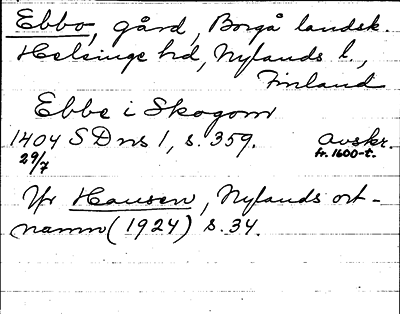 Ebbo, gård, Borgå landsk.
Helsinge hd, Nylands l.,
Finland
Ebbe i Skogom
1404 SDns 1, s. 359. avskr.
29/7 fr. 1600-t.
Yr Hausen, Nylands ort-
namn (1924) s. 34.